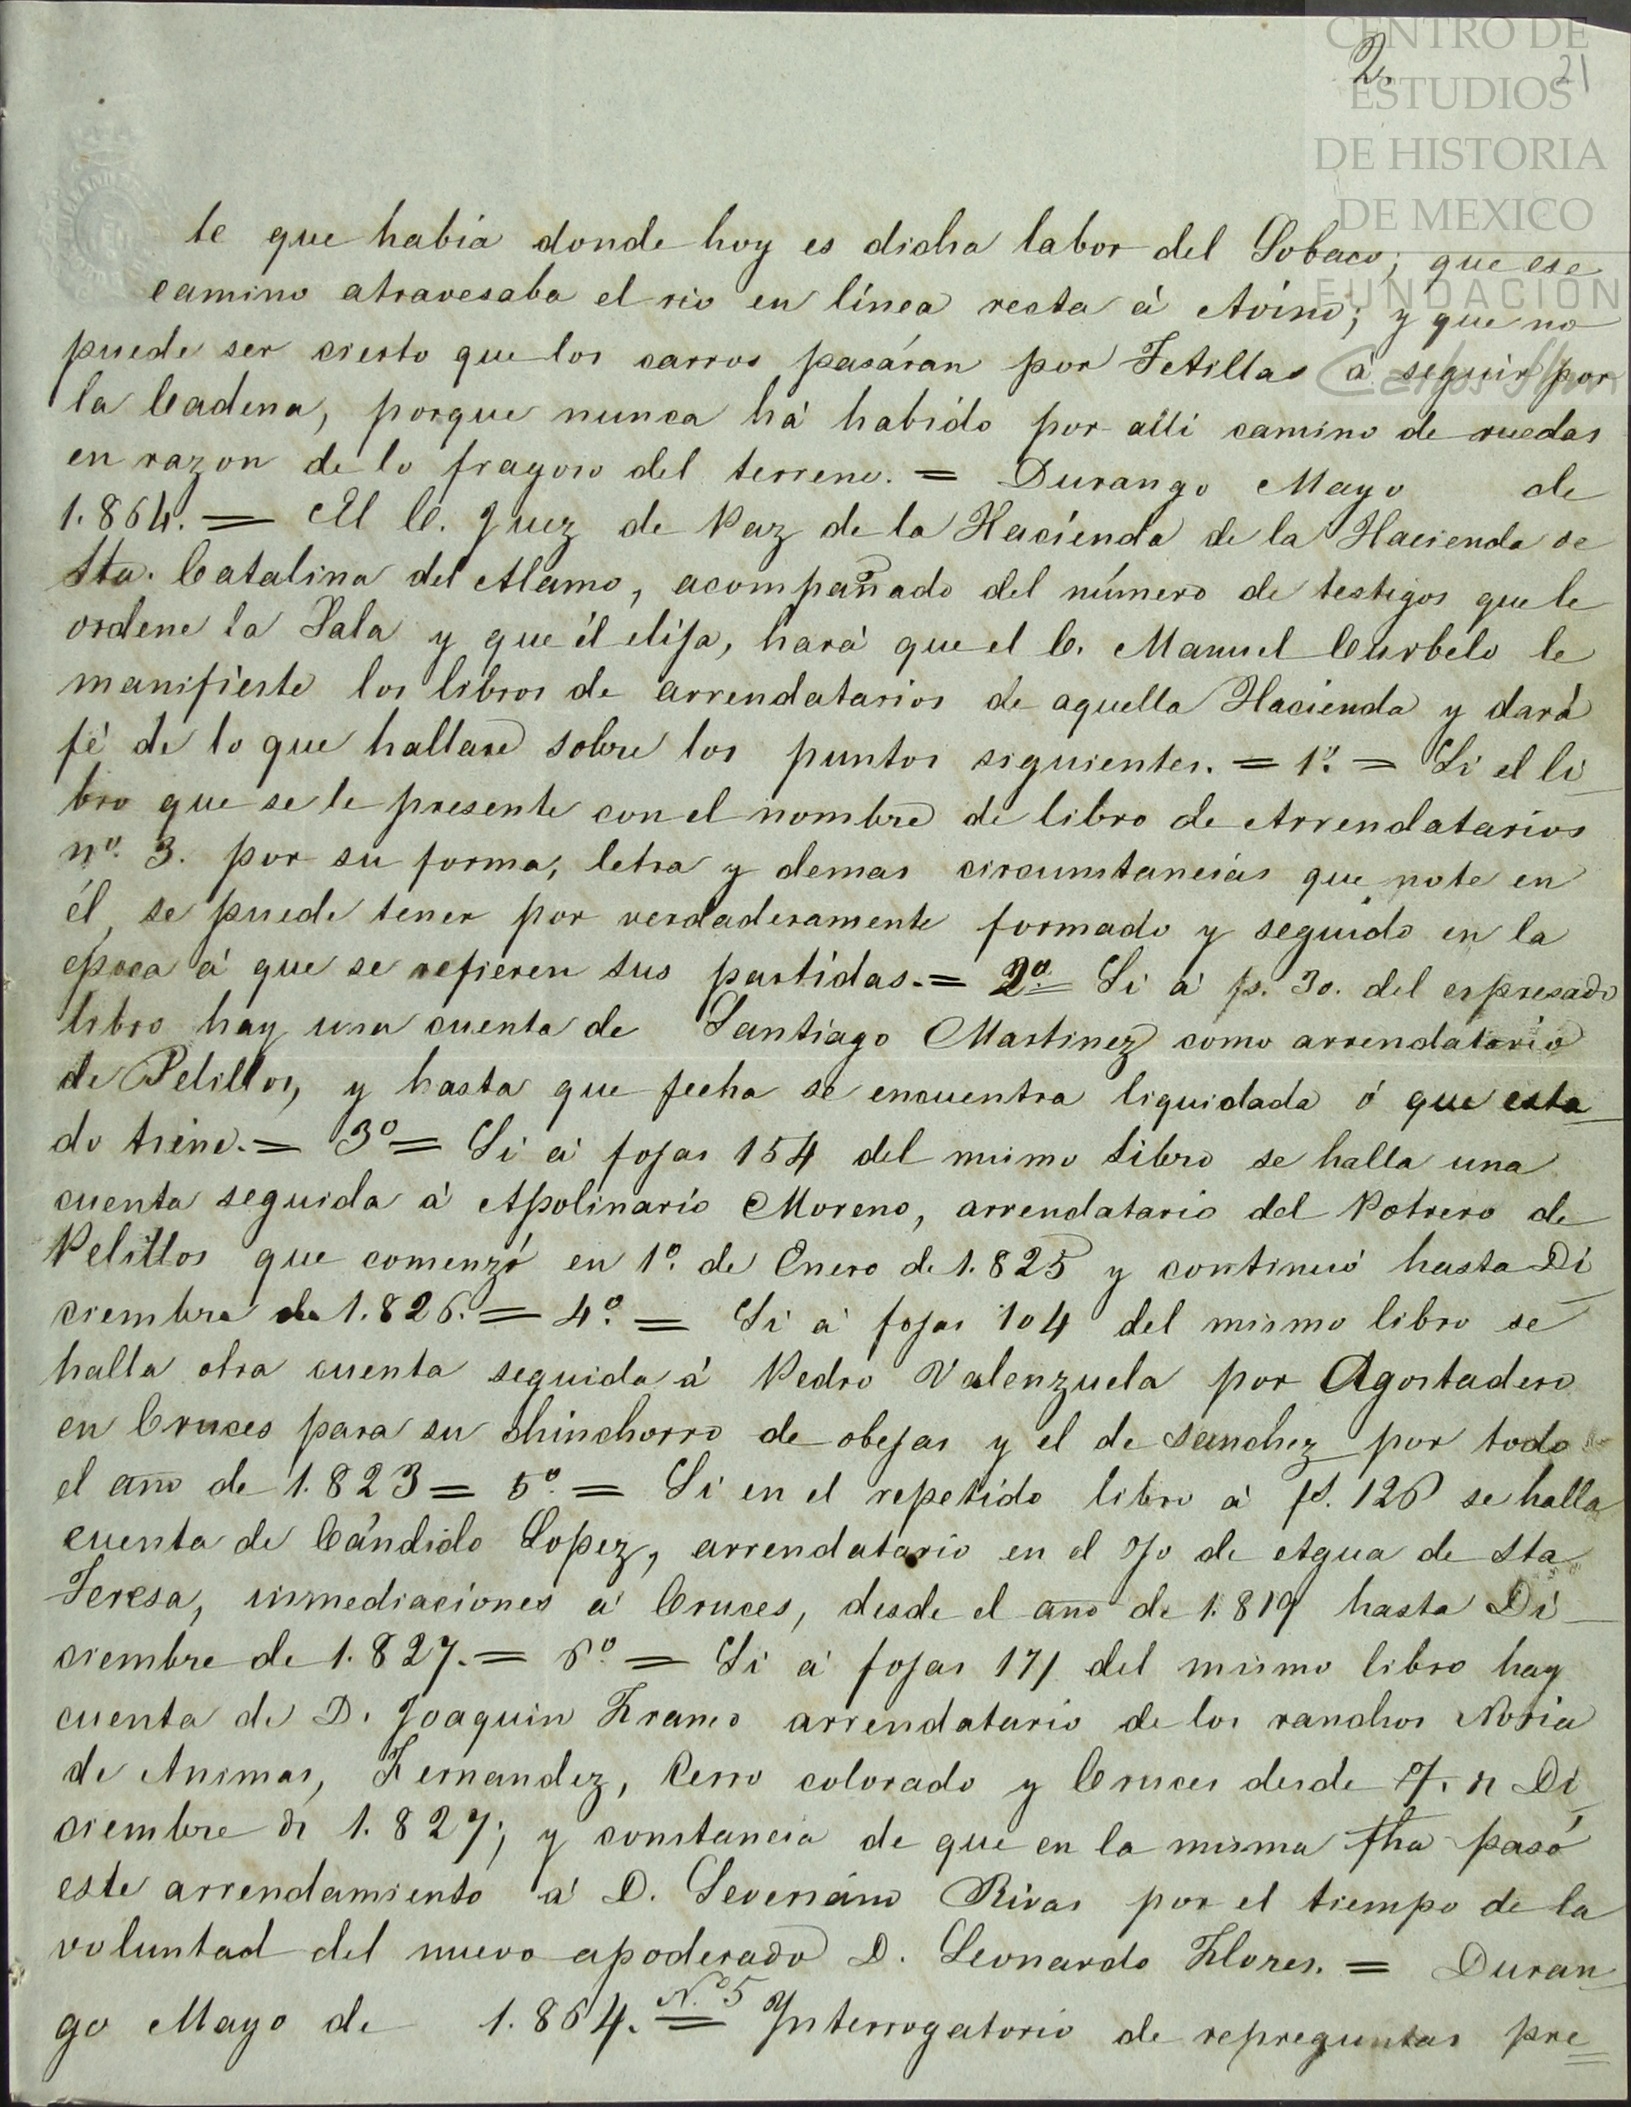 CENTRO DE
ESTUDIOS
DE HISTORIA
DE MEXICO
FUNDACIÓN
Carlos Slim
2. 21
te que habia donde hoy es dicha labor del Sobaco; que ese
camino atravesaba el rio en línea recta á Avino; y que no
puede ser cierto que los carros pasáran por Tetillas á seguir por
la Cadena, porque nunca há habido por allí camino de ruedas
en razon de lo fragoso del terreno. = Durango Mayo de
1.864. = El C. Juez de Paz de la Hacienda de la Hacienda de
Sta. Catalina del Alamo, acompañado del número de testigos que le
ordene la Sala y que él elija, hará que el C. Manuel Curbelo le
manifieste los libros de arrendatarios de aquella Hacienda y dará
fé de lo que hallare sobre los puntos siguientes. = 1º. = Si el li
bro que se le presente con el nombre de libro de Arrendatarios
nº. 3. por su forma, letra y demas circunstancias que note en
él, se puede tener por verdaderamente formado y seguido en la
epoca á que se refieren sus partidas. = 2º. = Si á f. 30. del espresado
libro hay una cuenta de Santiago Martinez como arrendatario
de Pelillos, y hasta que fecha se encuentra liquidada ó que esta
do tiene. = 3º = Si á fojas 154 del mismo libro se halla una
cuenta seguida á Apolinario Moreno, arrendatario del Potrero de
Pelillos que comenzó en 1º. de Enero de 1.825 y continuó hasta Di
ciembre de 1.826. = 4º. = Si á fojas 104 del mismo libro se
halla otra cuenta seguida á Pedro Valenzuela por Agostadero
en Cruces para su chinchorro de obejas y el de Sanchez por todo
el año de 1.823 = 5º. = Si en el repetido libro á f. 126 se halla
cuenta de Cándido Lopez, arrendatario en el Ojo de Agua de Sta
Teresa, inmediaciones á Cruces, desde el año de 1.819 hasta Di
ciembre de 1.827. = 6º. = Si á fojas 171 del mismo libro hay
cuenta de D. Joaquin Franco arrendatario de los ranchos Noria
de Animas, Fernandez, Cerro colorado y Cruces desde 7. de Di
ciembre de 1.827; y constancia de que en la misma fha pasó
este arrendamiento á D. Severiano Rivas por el tiempo de la
voluntad del nuevo apoderado D. Leonardo Flores. = Duran
go Mayo de 1.864. = Nº. 5 Interrogatorio de repreguntas pre